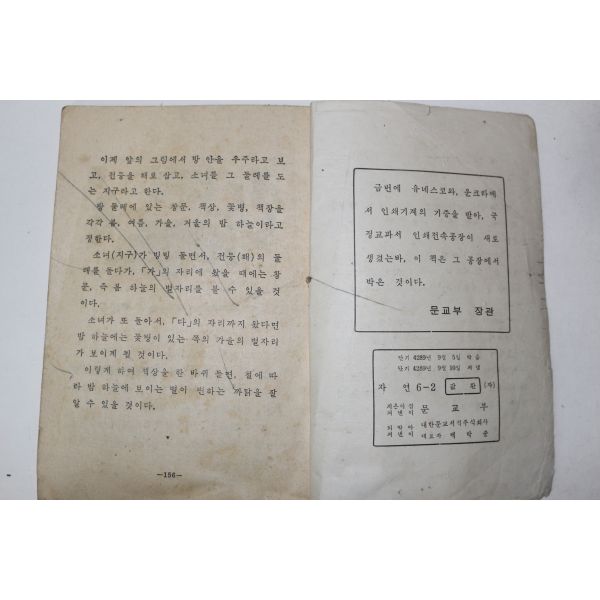 이제 앞의 그림에서 방 안을 우주라고 보
고, 전등을 해로 삼고, 소녀를 그 둘레를 도
는 지구라고 한다.
방 둘레에 있는 창문, 책상, 꽃병, 책장을
각각 봄, 여름, 가을, 겨울의 밤 하늘이라고
정한다.
소녀(지구)가 빙빙 돌면서, 전등(해)의 둘
레를 돌다가, 「가」의 자리에 왔을 때에는 창
문, 즉 봄 하늘의 별자리를 볼 수 있을 것
이다.
소녀가 또 돌아서, 「다」의 자리까지 왔다면
밤 하늘에는 꽃병이 있는 쪽의 가을의 별자리
가 보이게 될 것이다.
이렇게 하여 책상을 한 바퀴 돌면, 철에 따
라 밤 하늘에 보이는 별이 변하는 까닭을 잘
알 수 있을 것이다.
—156—
금번에 유네스코와, 운크라에
서 인쇄기계의 기증을 받아, 국
정교과서 인쇄전속공장이 새로
생겼는바, 이 책은 그 공장에서
박은 것이다.
문교부 장관
단기 4289년 9월 5일 박음
단기 4289년 9월 10일 펴냄
자연 6-2
지은이 겸
펴낸이 문교부
대한문교서적주식회사
대표자